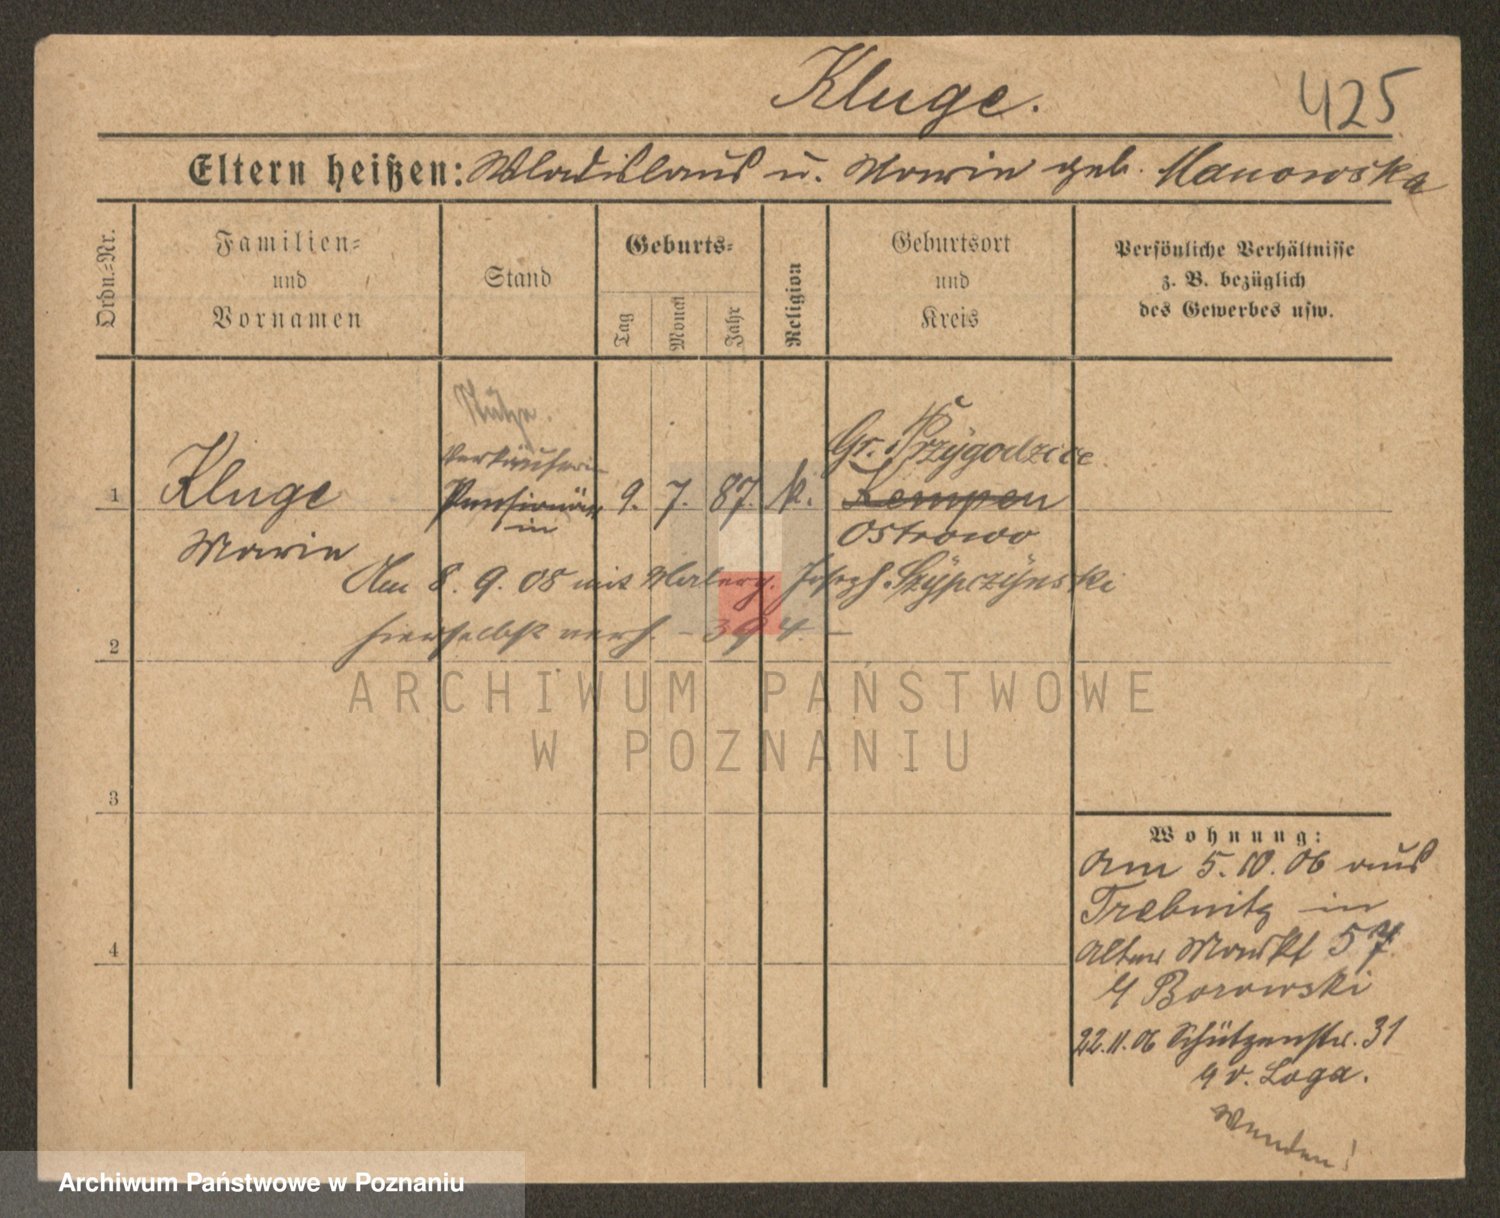 Kluge.
425
Eltern heißen: Wladislaus u. Marie geb. Manowska
Ordn.=Nr.
Familien=
und
Vornamen
Stand
Geburts=
Tag
Monat
Jahr
Religion
Geburtsort
und
Kreis
Persönliche Verhältnisse
z. B. bezüglich
des Gewerbes usw.
Stütze.
Verkäuferin
1
Kluge
Marie
Pensionär
in
9. 7. 87. k.
Gr. Przygodzice
Kempen
Ostrowo
Am 8. 9. 08 mit Malerg. Joseph Szypczynski
hierselbst verh. - 394. -
2
3
4
Wohnung:
Am 5.10.06 aus
Trebnitz in
Alter Markt 57
b/ Borowski
22.11.06 Schützenstr. 31
b v. Loga.
Wenden!
ARCHIWUM PAŃSTWOWE
W POZNANIU
Archiwum Państwowe w Poznaniu